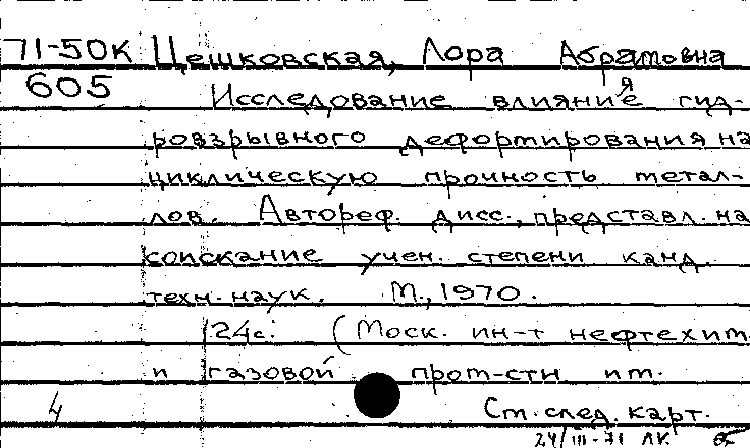 71-50к Цешковская, Лора Абрамовна
605 Исследование влияния гид-
ровзрывного деформирования на
циклическую прочность метал-
лов. Автореф. дисс., представл. на
соискание учен. степени канд.
техн. наук. М., 1970.
24с. (Моск. ин-т нефтехим.
и газовой пром-сти им.
4 См. след. карт.
24/III-71 ЛК